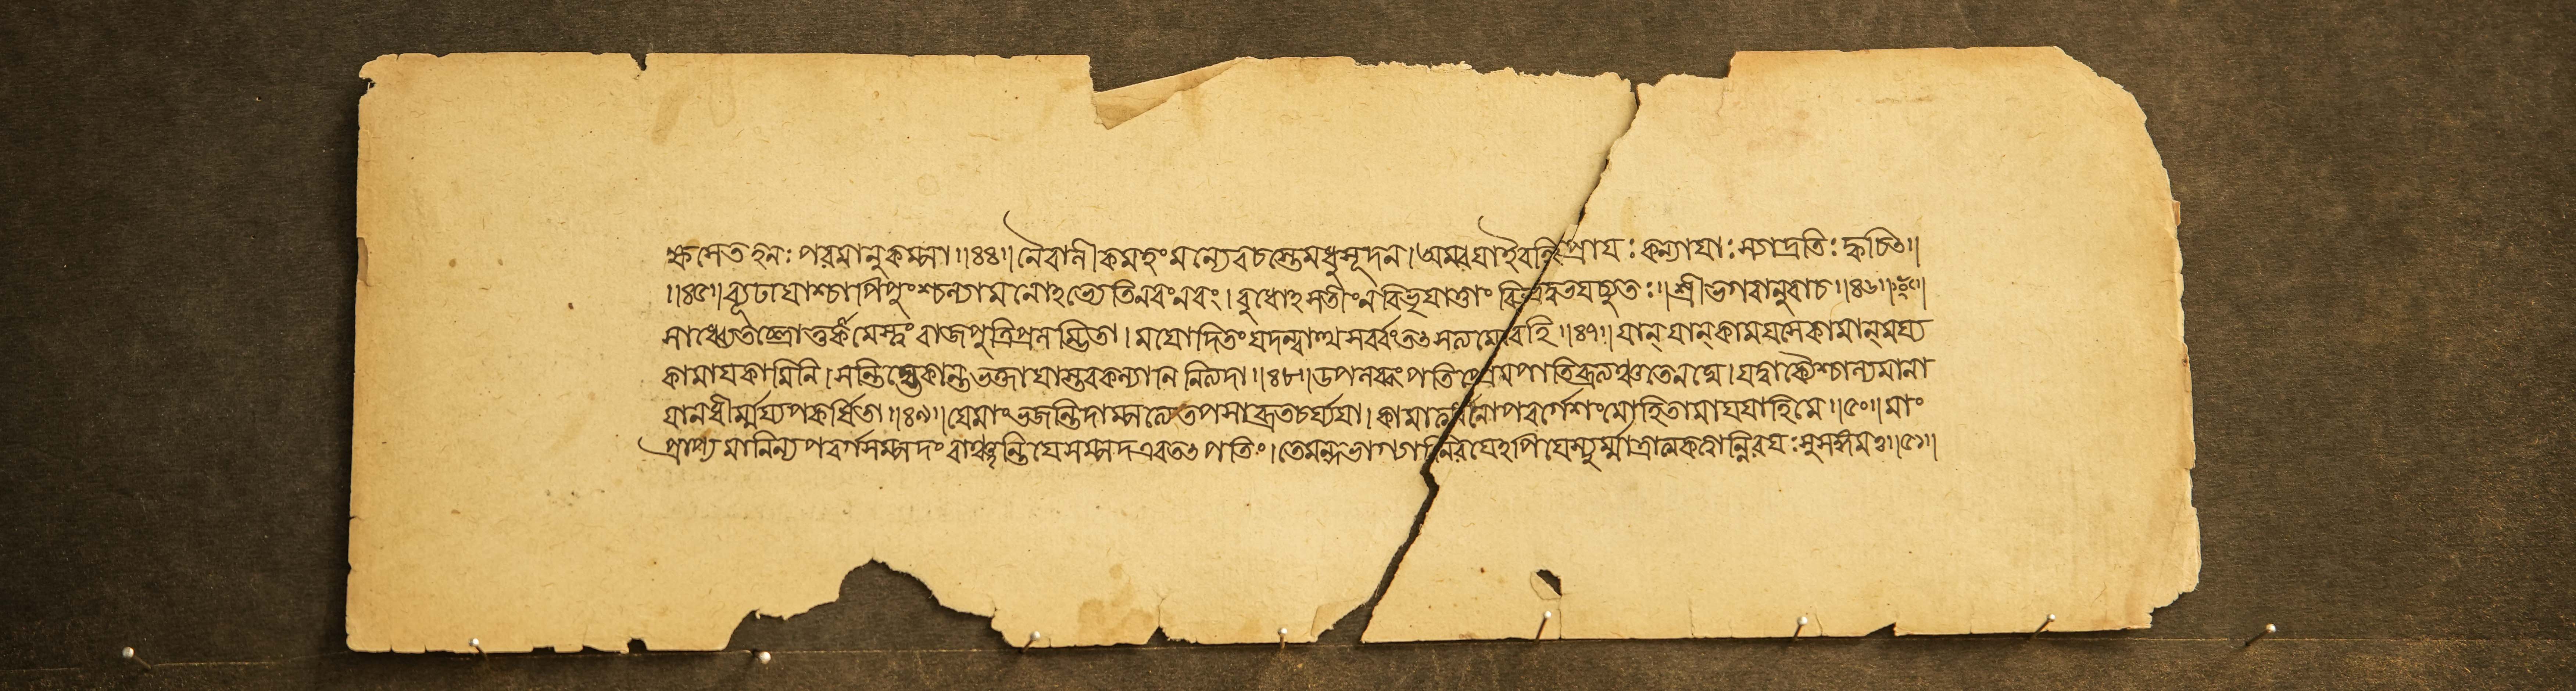 ৰূসেতঽনঃ পরমানুকম্পা॥৪৪॥নৈবালীকমহং মন্যেবচস্তেমধুসূদন।অম্বযাইবনহিপ্রাযঃ কন্যাযাঃ স্যাদ্রতিঃ ক্বচিৎ॥
॥৪৫॥ব্যূঢাযাশ্চাপিপুংশ্চল্যামনোঽভ্যেতিনবংনবং।বুধোঽসতীংনবিভৃযাত্তাং বিভ্রদুভযচ্যুতঃ॥শ্রীভগবানুবাচ॥৪৬॥
সাধ্ব্যেতচ্ছ্রোতুকামৈস্ত্বং রাজপুত্রিপ্রলম্ভিতা।মযোদিতংযদন্বাত্থসর্ব্বংতৎসত্যমেবহি॥৪৭॥যান্ যান্ কামযসেকামান্ ময্য
কামাযকামিনি।সন্তিহ্যেকান্তভক্তাযাস্তবকল্যাণি নিত্যদা॥৪৮॥উপলব্ধং পতিপ্রেমপাতিব্রত্যঞ্চতেনঘে।যদ্বাক্যৈশ্চাল্যমানা
যানধীর্ম্ময্যপকর্ষিতা॥৪৯॥যেমাং ভজন্তিদাম্পত্যেতপসাব্রতচর্য্যযা।কামাত্মানোপবর্গেশংমোহিতামাযযাহিমে॥৫০॥মাং
প্রাপ্য মানিন্যপবর্গসম্পদং বাঞ্ছন্তিযেসম্পদএবতৎপতিং।তেমন্দভাগ্যানিরযেঽপিযেস্যুর্ম্মাত্রাত্মকত্বান্নিরযঃসুসঙ্গমঃ॥৫১॥